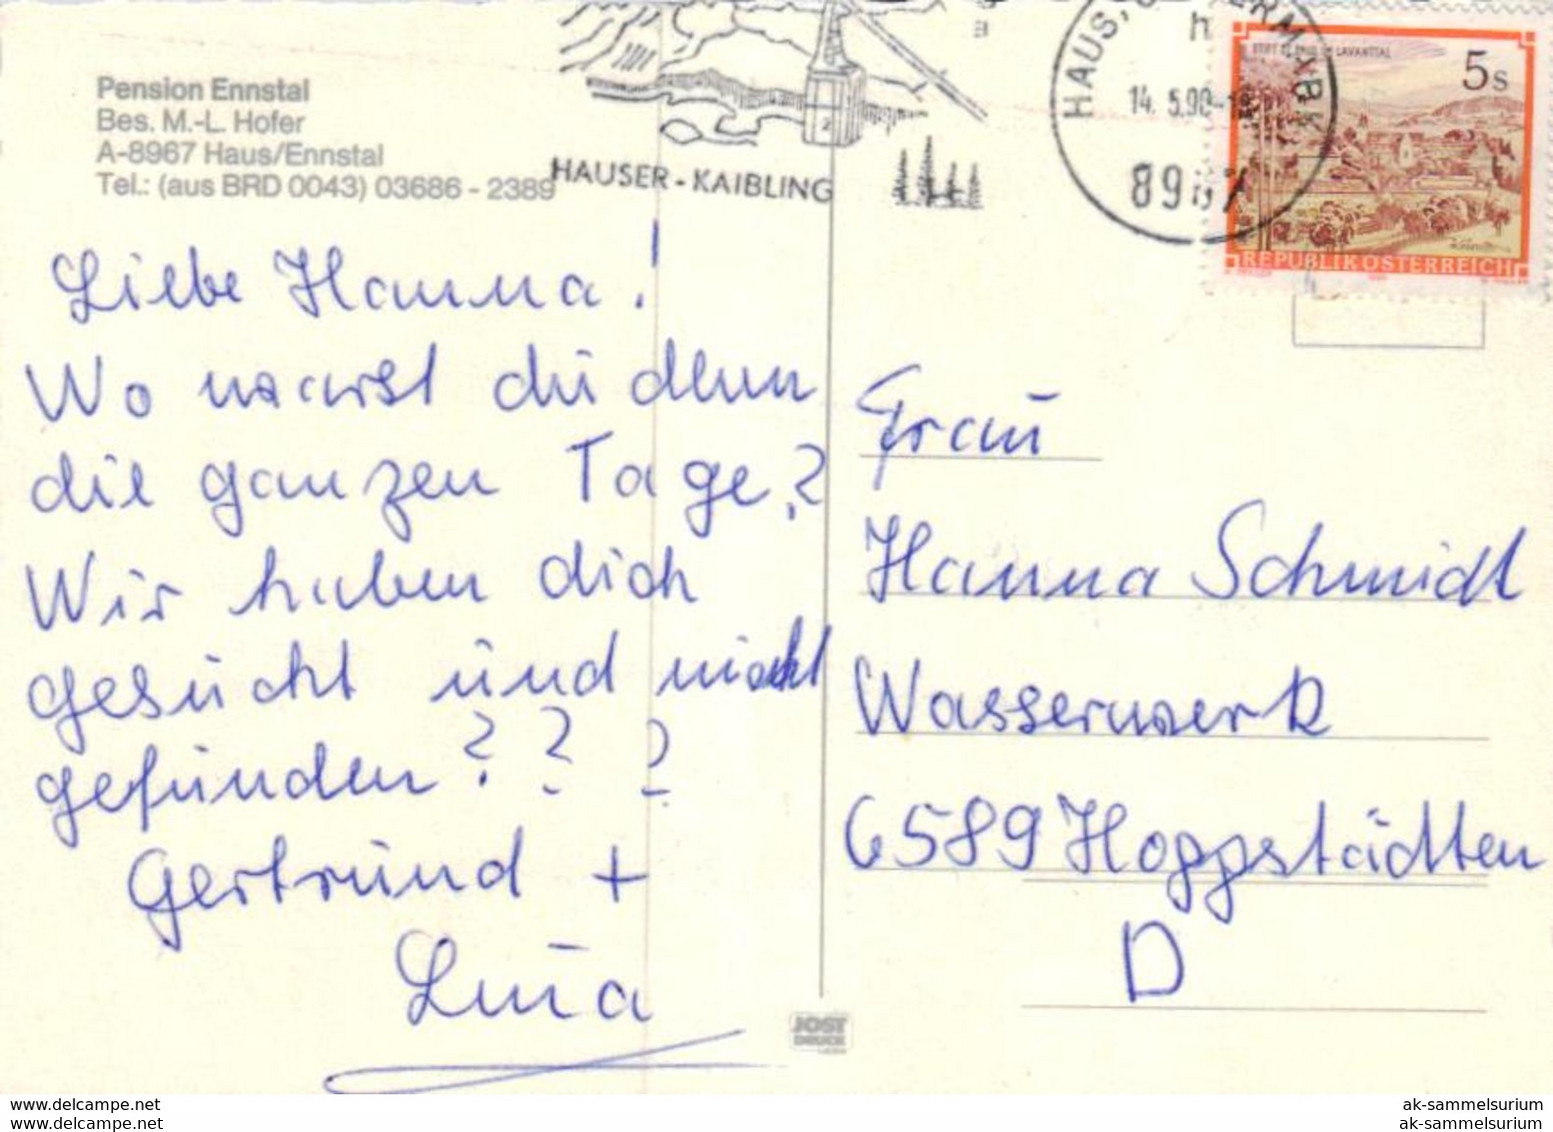 Pension Ennstal
Bes. M.-L. Hofer
A-8967 Haus/Ennstal
Tel.: (aus BRD 0043) 03686 - 2389
HAUSER-KAIBLING
HAUS,
14. 5.90-
8967
5s
REPUBLIK ÖSTERREICH
Liebe Hanna!
Wo warst du denn
die ganzen Tage?
Wir haben dich
gesucht und nicht
gefunden? ? ?
Gertrund +
Frau
Hanna Schmidt
Wasserwerk
6589 Hoppstädten
D
JOST
DRUCK
www.delcampe.net
www.delcampe.net
ak-sammelsurium
ak-sammelsurium